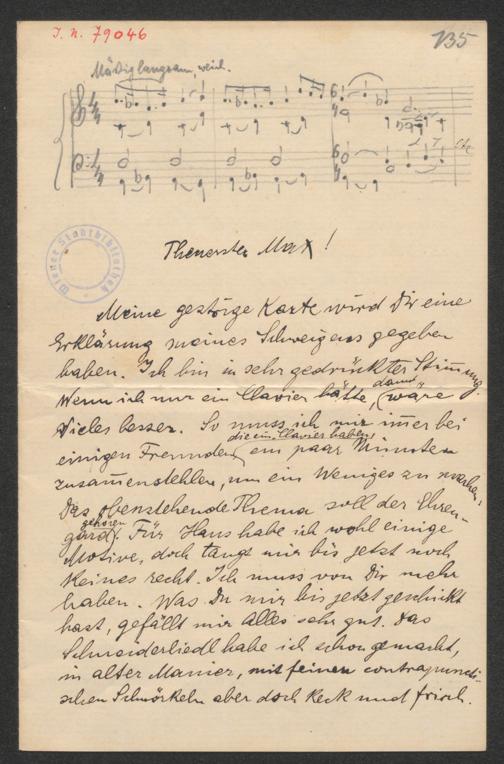 I. N. 79046
135
Mäßig langsam, weich.
etc
Wiener Stadtbibliothek
Theuerster Max!
Meine gestrige Karte wird Dir eine
Erklärung meines Schweigens gegeben
haben. Ich bin in sehr gedrückter Stim̄ung.
Wenn ich nur ein Clavier hätte, dann wäre
Vieles besser. So muss ich mir im̄er bei
einigen Freunden, die ein Clavier haben, ein paar Minuten
zusam̄enstehlen, um ein Weniges zu machen.
Das obenstehende Thema soll der
gehören. Für Hans habe ich wohl einige
Motive, doch taugt mir bis jetzt noch
Keines recht. Ich muss von Dir mehr
haben. Was Du mir bis jetzt geschickt
hast, gefällt mir Alles sehr gut. Das
Schneiderliedl habe ich schon gemacht,
in alter Manier, mit feinen contrapuncti-
schen Schnörkeln aber doch keck und frisch.